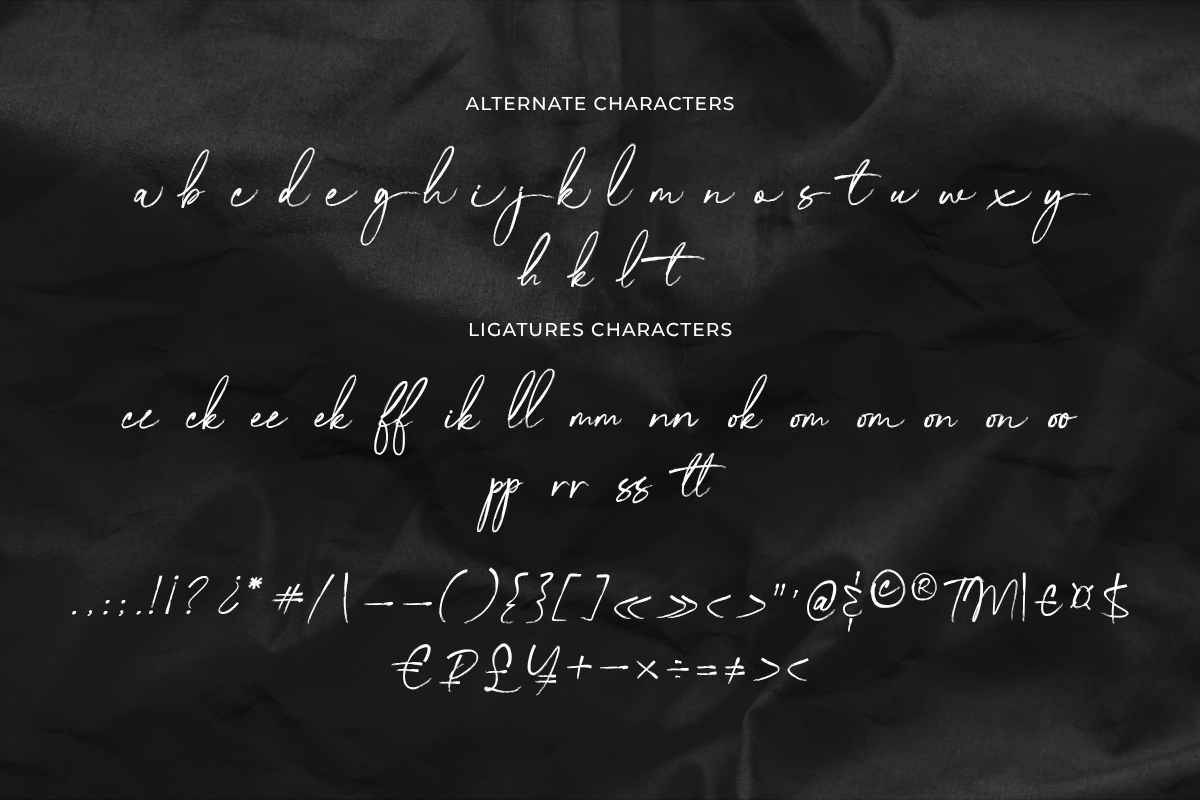 ALTERNATE CHARACTERS
a b c d e g h i j k l m n o s t u w x y
h k l t
LIGATURES CHARACTERS
ce ck ee ek ff ik ll mm nn ok om om on on oo
pp rr ss tt
. , : ; . ! ¡ ? ¿ * # / | — — ( ) { } [ ] « » < > " ' @ & © ® TM | € ¤ $
€ ₽ £ ¥ + − × ÷ = ≠ > <